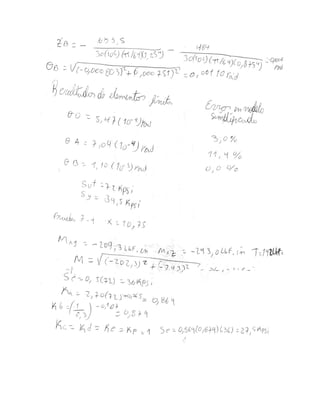 ZB = - 693,5 / 30(10⁶)(π/64)(1,25⁴) - 484 / 30(10⁶)(π/64)(0,875⁴) = rad
ΘB = √(-0,000 803)² + (0,000 751)² = 0,00110 rad
Resultados de elementos finitos Error en modelo simplificado
θ0 = 5,47(10⁻⁴) rad 3,0%
θA = 7,09(10⁻⁴) rad 11,4%
θB = 1,10(10⁻³) rad 0,0%
Sut = 72 Kpsi
Sy = 39,5 Kpsi
Prueba 7-4 x = 10,75
My = -209,3 Lbf.in Mz = -293,0 Lbf.in T =
M = √(-202,3)² + (-293)²
Se = 0,5(72) = 36 Kpsi
Ka = 2,70(72) = 0,869
Kb = = 0,879
Kc = Kd = Ke = Kf = 1 Se = 0,869(0,879)(36) = 27,5 Kpsi